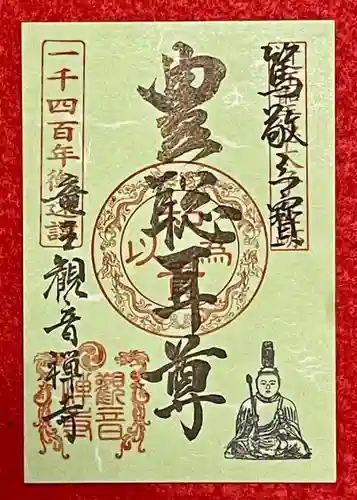 篤敬三寳
豊聡耳尊
以 為
一千四百年御遠忌
觀音禅寺
觀音
禅寺